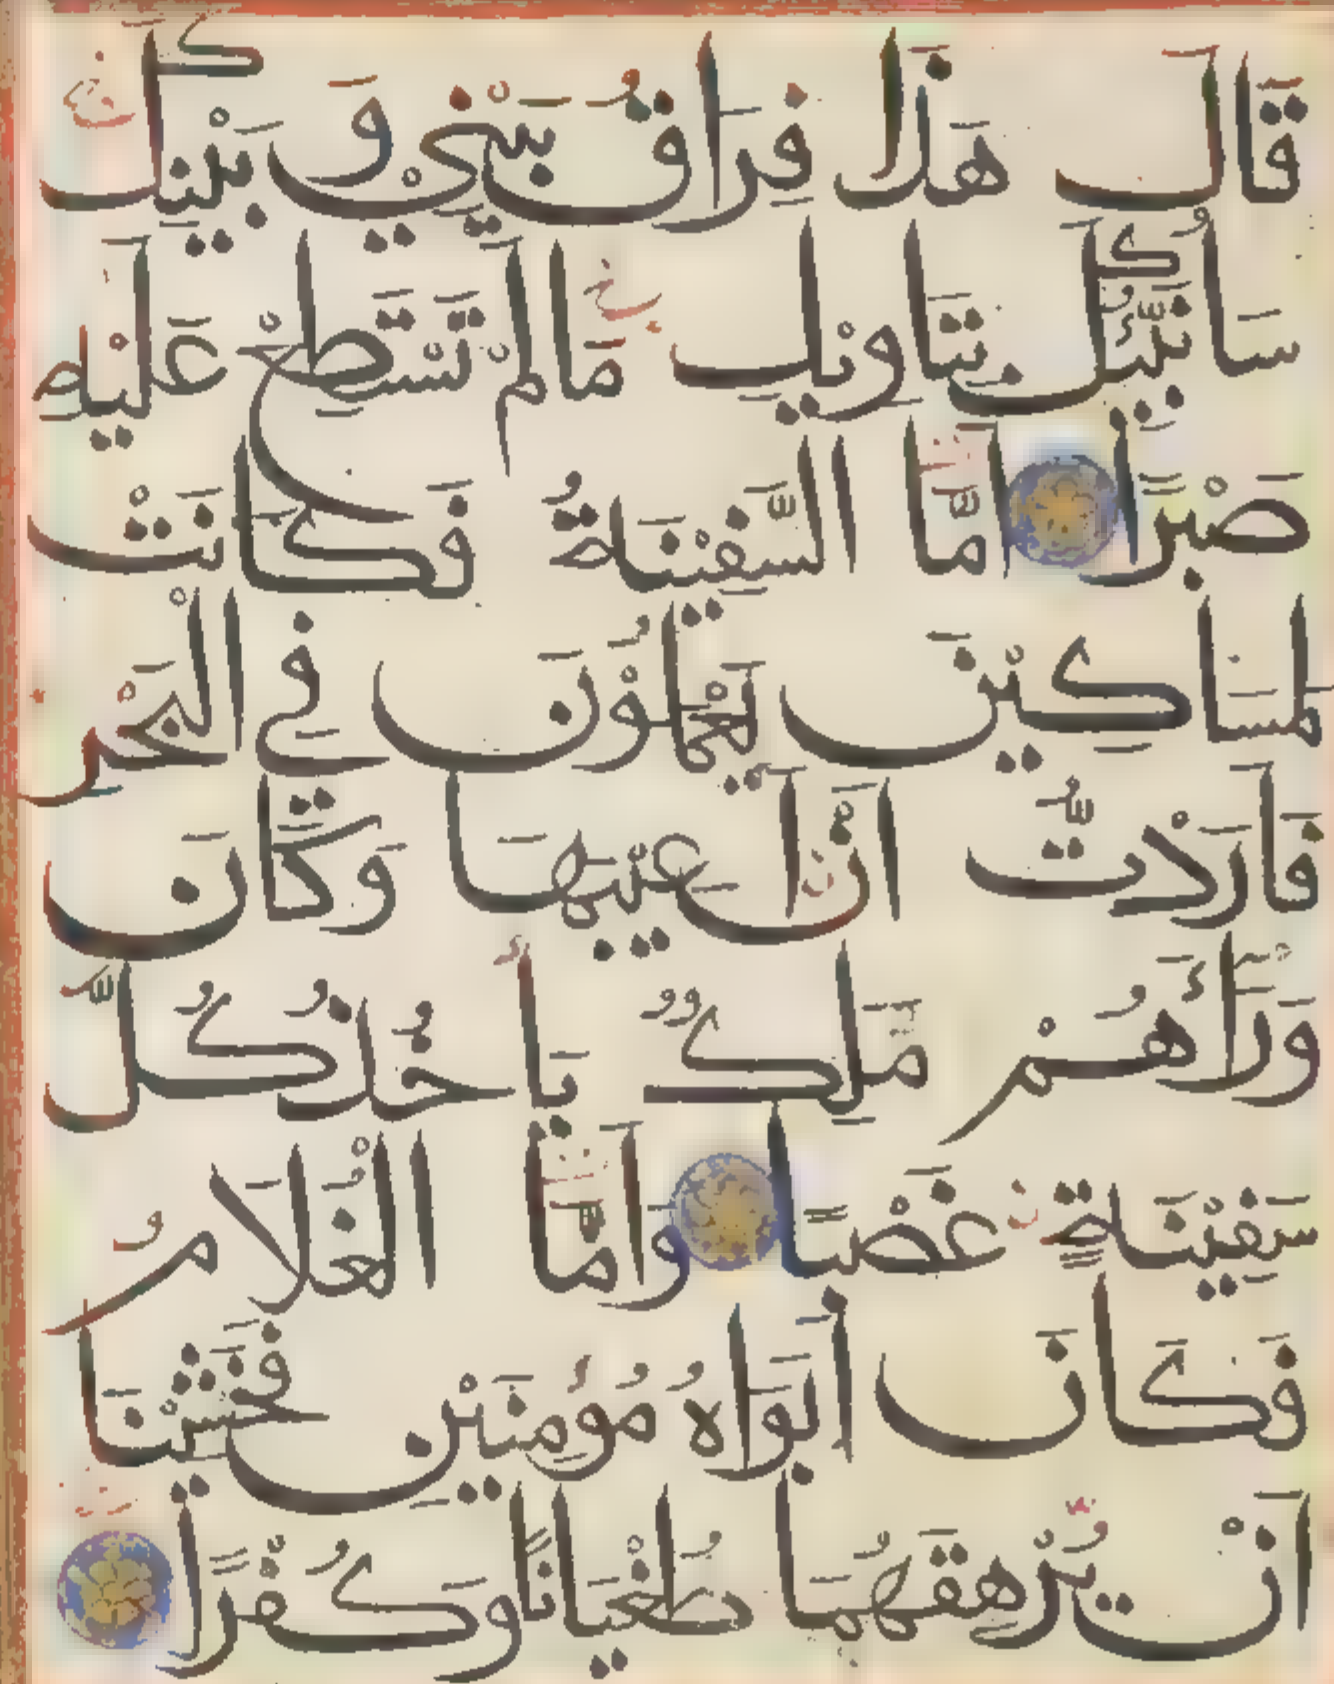 قَالَ هَذَا فِرَاقُ بَيْنِيْ وَبَيْنِكَ
سَأُنَبِّئُكَ بِتَاوِيْلِ مَالَمْ تَسْتَطِعْ عَلَيْهِ
صَبْرًا اَمَّا السَّفِيْنَةُ فَكَانَتْ
لِمَسَاكِيْنَ يَعْمَلُوْنَ فِي الْبَحْرِ
فَاَرَدْتُّ اَنْ اَعِيْبَهَا وَكَانَ
وَرَآءَهُمْ مَلِكٌ يَأْخُذُ كُلَّ
سَفِيْنَةٍ غَصْبًا وَاَمَّا الْغُلَامُ
فَكَانَ اَبَوَاهُ مُؤْمِنَيْنِ فَخَشِيْنَا
اَنْ يُّرْهِقَهُمَا طُغْيَانًا وَكُفْرًا